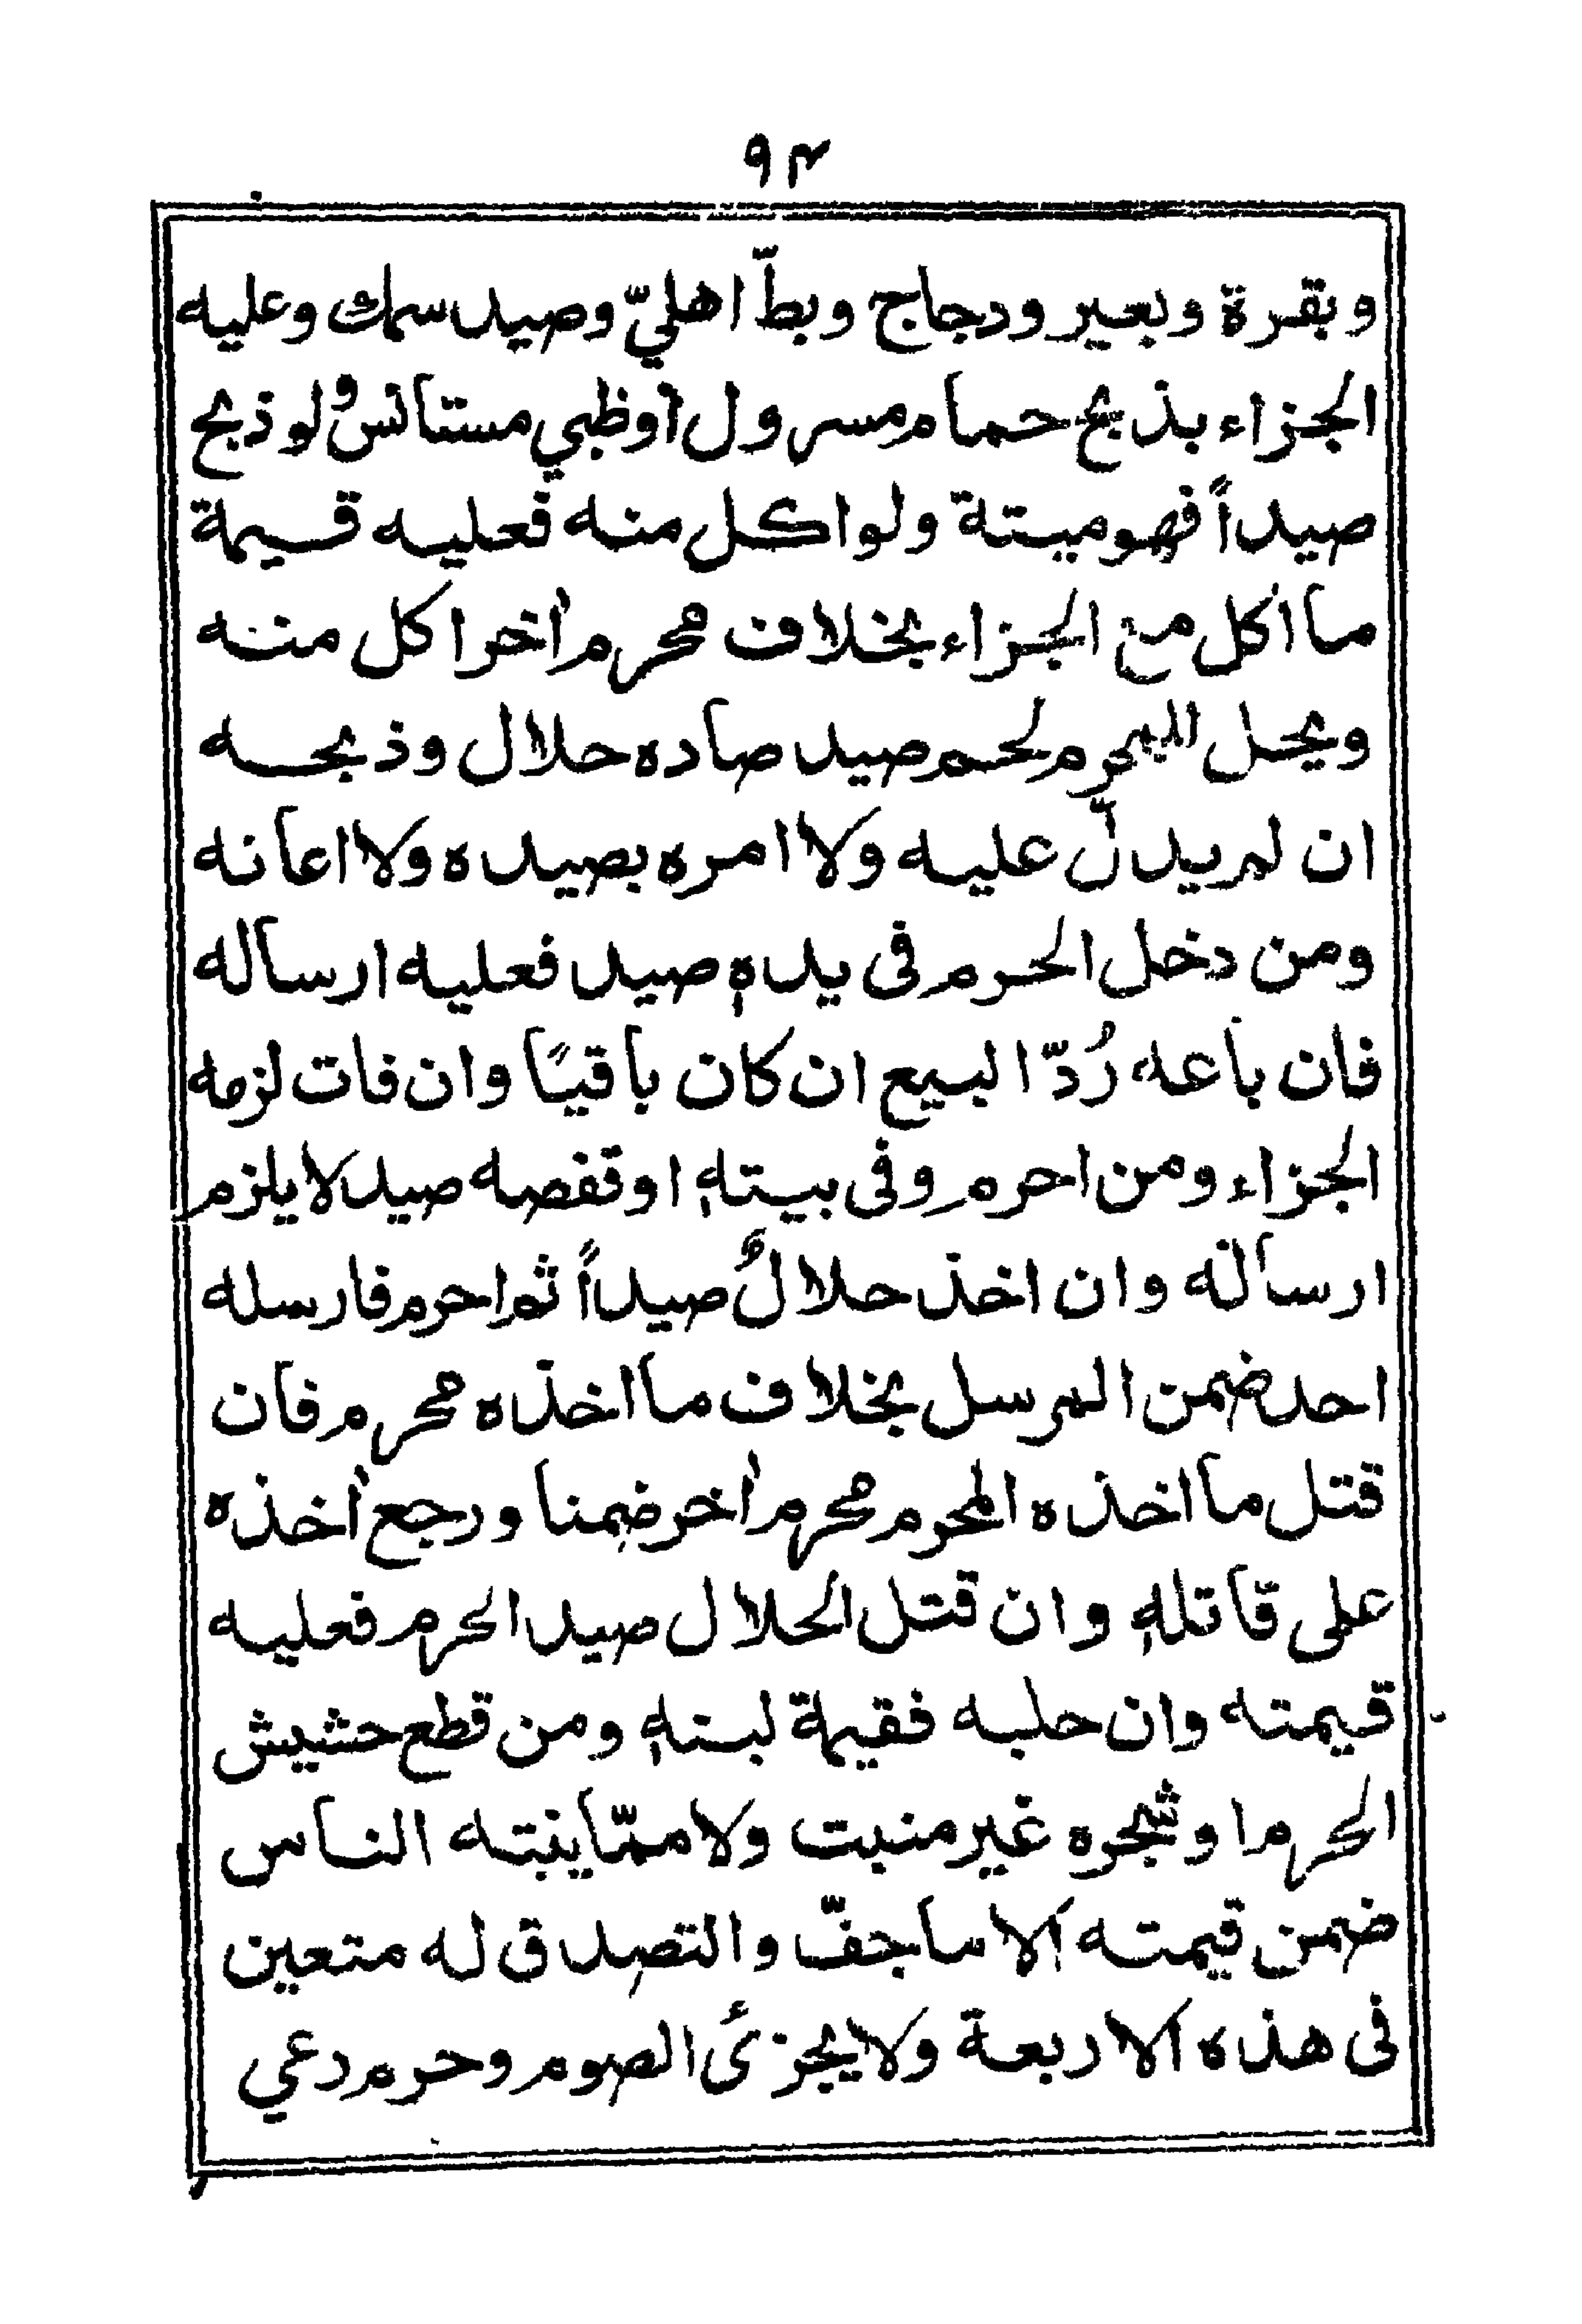 ٩٣
وبقرة وبعير ودجاج وبطّ اهليّ وصيد سمك وعليه
الجزاء بذبح حمام مسرول أوظبي مستانس ولو ذبح
صيداً فهو ميتة ولو اكل منه فعليه قيمة
ما اكل مع الجزاء بخلاف محرم أخر اكل منه
ويحل للمحرم لحم صيد صاده حلال وذبحه
ان لم يدلّ عليه ولا امره بصيده ولا اعانه
ومن دخل الحرم فى يده صيد فعليه ارساله
فان باعه رُدّ البيع ان كان باقيًا وان فات لزمه
الجزاء ومن احرم وفى بيته او قفصه صيد لا يلزم
ارساله وان اخذ حلالٌ صيداً ثم احرم فارسله
احد ضمن المرسل بخلاف ما اخذه محرم فان
قتل ما اخذه المحرم محرم أخر ضمنا ورجع أخذه
على قاتله وان قتل الحلال صيد الحرم فعليه
قيمته وان حلبه فقيمة لبنه ومن قطع حشيش
الحرم او شجره غير منبت ولا ممّا ينبته الناس
ضمن قيمته الا ما جفّ والتصدق له متعين
فى هذه الاربعة ولا يجزئ الصوم وحرم رعي